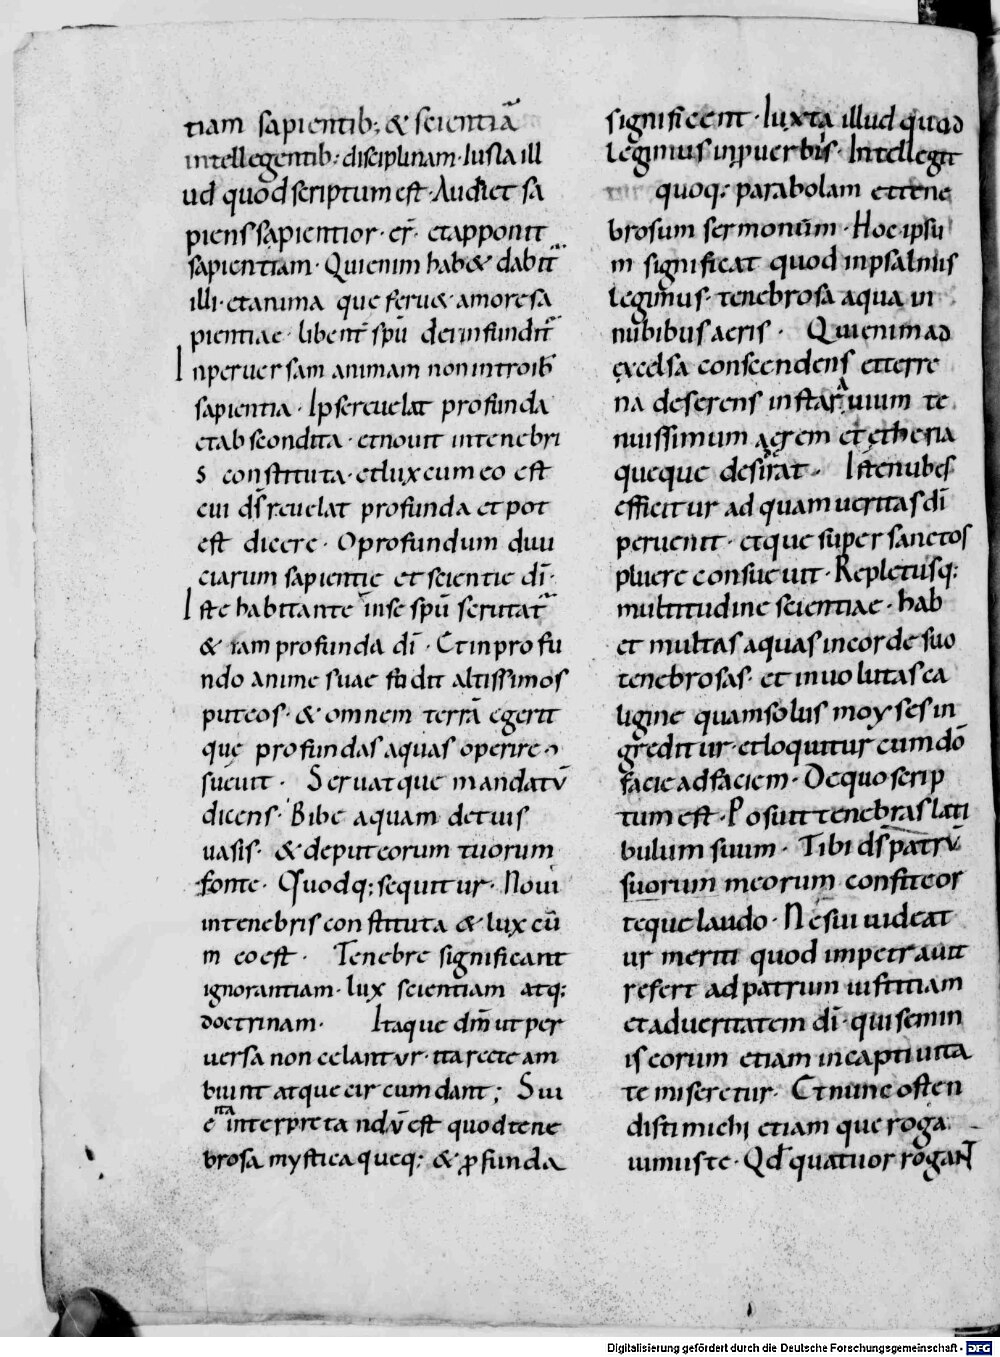 tiam sapientib; & scientiā
intellegentib; disciplinam · Iusta ill
ud quod scriptum est · Audiet sa
piens sapientior · er̄ · et apponit
sapientiam · Qui enim hab& dabit̄
illi · et anima que feru& amore sa
pientiae · libent̄ sp̄u dei infundit̄
In peruersam animam non introib̄
sapientia · Ipse reuelat profunda
et abscondita · et nouit in tenebri
s constituta · et lux cum eo est
cui d̄s reuelat profunda et pot
est dicere · O profundum diui
ciarum sapientię et scientie dī ·
Iste habitante in se sp̄u scrutat̄
& iam profunda dī · Et in profu
ndo anime suae fodit altissimos
puteos · & omnem terrā egerit
que profundas aquas operire con
sueuit · Seruatque mandatū
dicens · Bibe aquam de tuis
uasis · & de puteorum tuorum
fonte · Quodq; sequitur · Noui
in tenebris constituta & lux cū
in eo est · Tenebre significant
ignorantiam · lux scientiam atq;
doctrinam · Itaque dn̄m ut per
uersa non celantur · ita recte am
biunt atque circumdant ; Sui
e nta interpretandū est quod tene
brosa mystica queq; & ꝓfunda
significent · Iuxta illud quod
legimus in ꝓuerbiis · Intellegit
quoq; parabolam et tene
brosum sermonum · Hoc ipsu
m significat quod in psalmis
legimus · tenebrosa aqua in
nubibus aeris · Qui enim ad
excelsa conscendens et terre
na deserens instar auium te
nuissimum aerem et etheria
queque desirat · Iste nubes
efficitur ad quam ueritas dī
peruenit · et que super sanctos
pluere consueuit · Repletusq;
multitudine scientiae · hab
et multas aquas in corde suo
tenebrosas · et inuolutas ca
ligine quam solus moyses in
greditur · et loquitur cum dō
facie ad faciem · De quo scrip
tum est · Posuit tenebras lati
bulum suum · Tibi d̄s patrū
suorum meorum confiteor
teque laudo · Ne sui uideat
ur meriti quod impetrauit
refert ad patrum iustitiam
et ad ueritatem dī · qui semin
is eorum etiam in captiuita
te miseretur · Et nunc osten
disti michi etiam que roga
uimus te · Qd̄ quatuor rogant
Digitalisierung gefördert durch die Deutsche Forschungsgemeinschaft - DFG